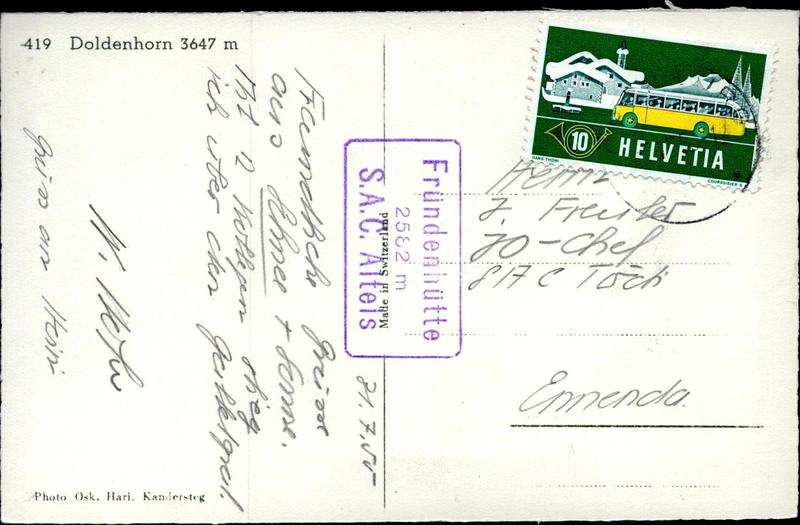 419 Doldenhorn 3647 m
31.7.55
Freundliche Grüsse
aus Ebne + Sonne.
Mit 2 Kollegen stieg
ich über den
W.
Gruss an Heiri
Photo Osk. Hari. Kandersteg
Made in Switzerland
Fründenhütte
2562 m
S.A.C. Altels
10 HELVETIA
HANS THÖNI
COURVOISIER S.A.
Herrn
J. Freuler
JO-Chef
SAC Tödi
Ennenda.